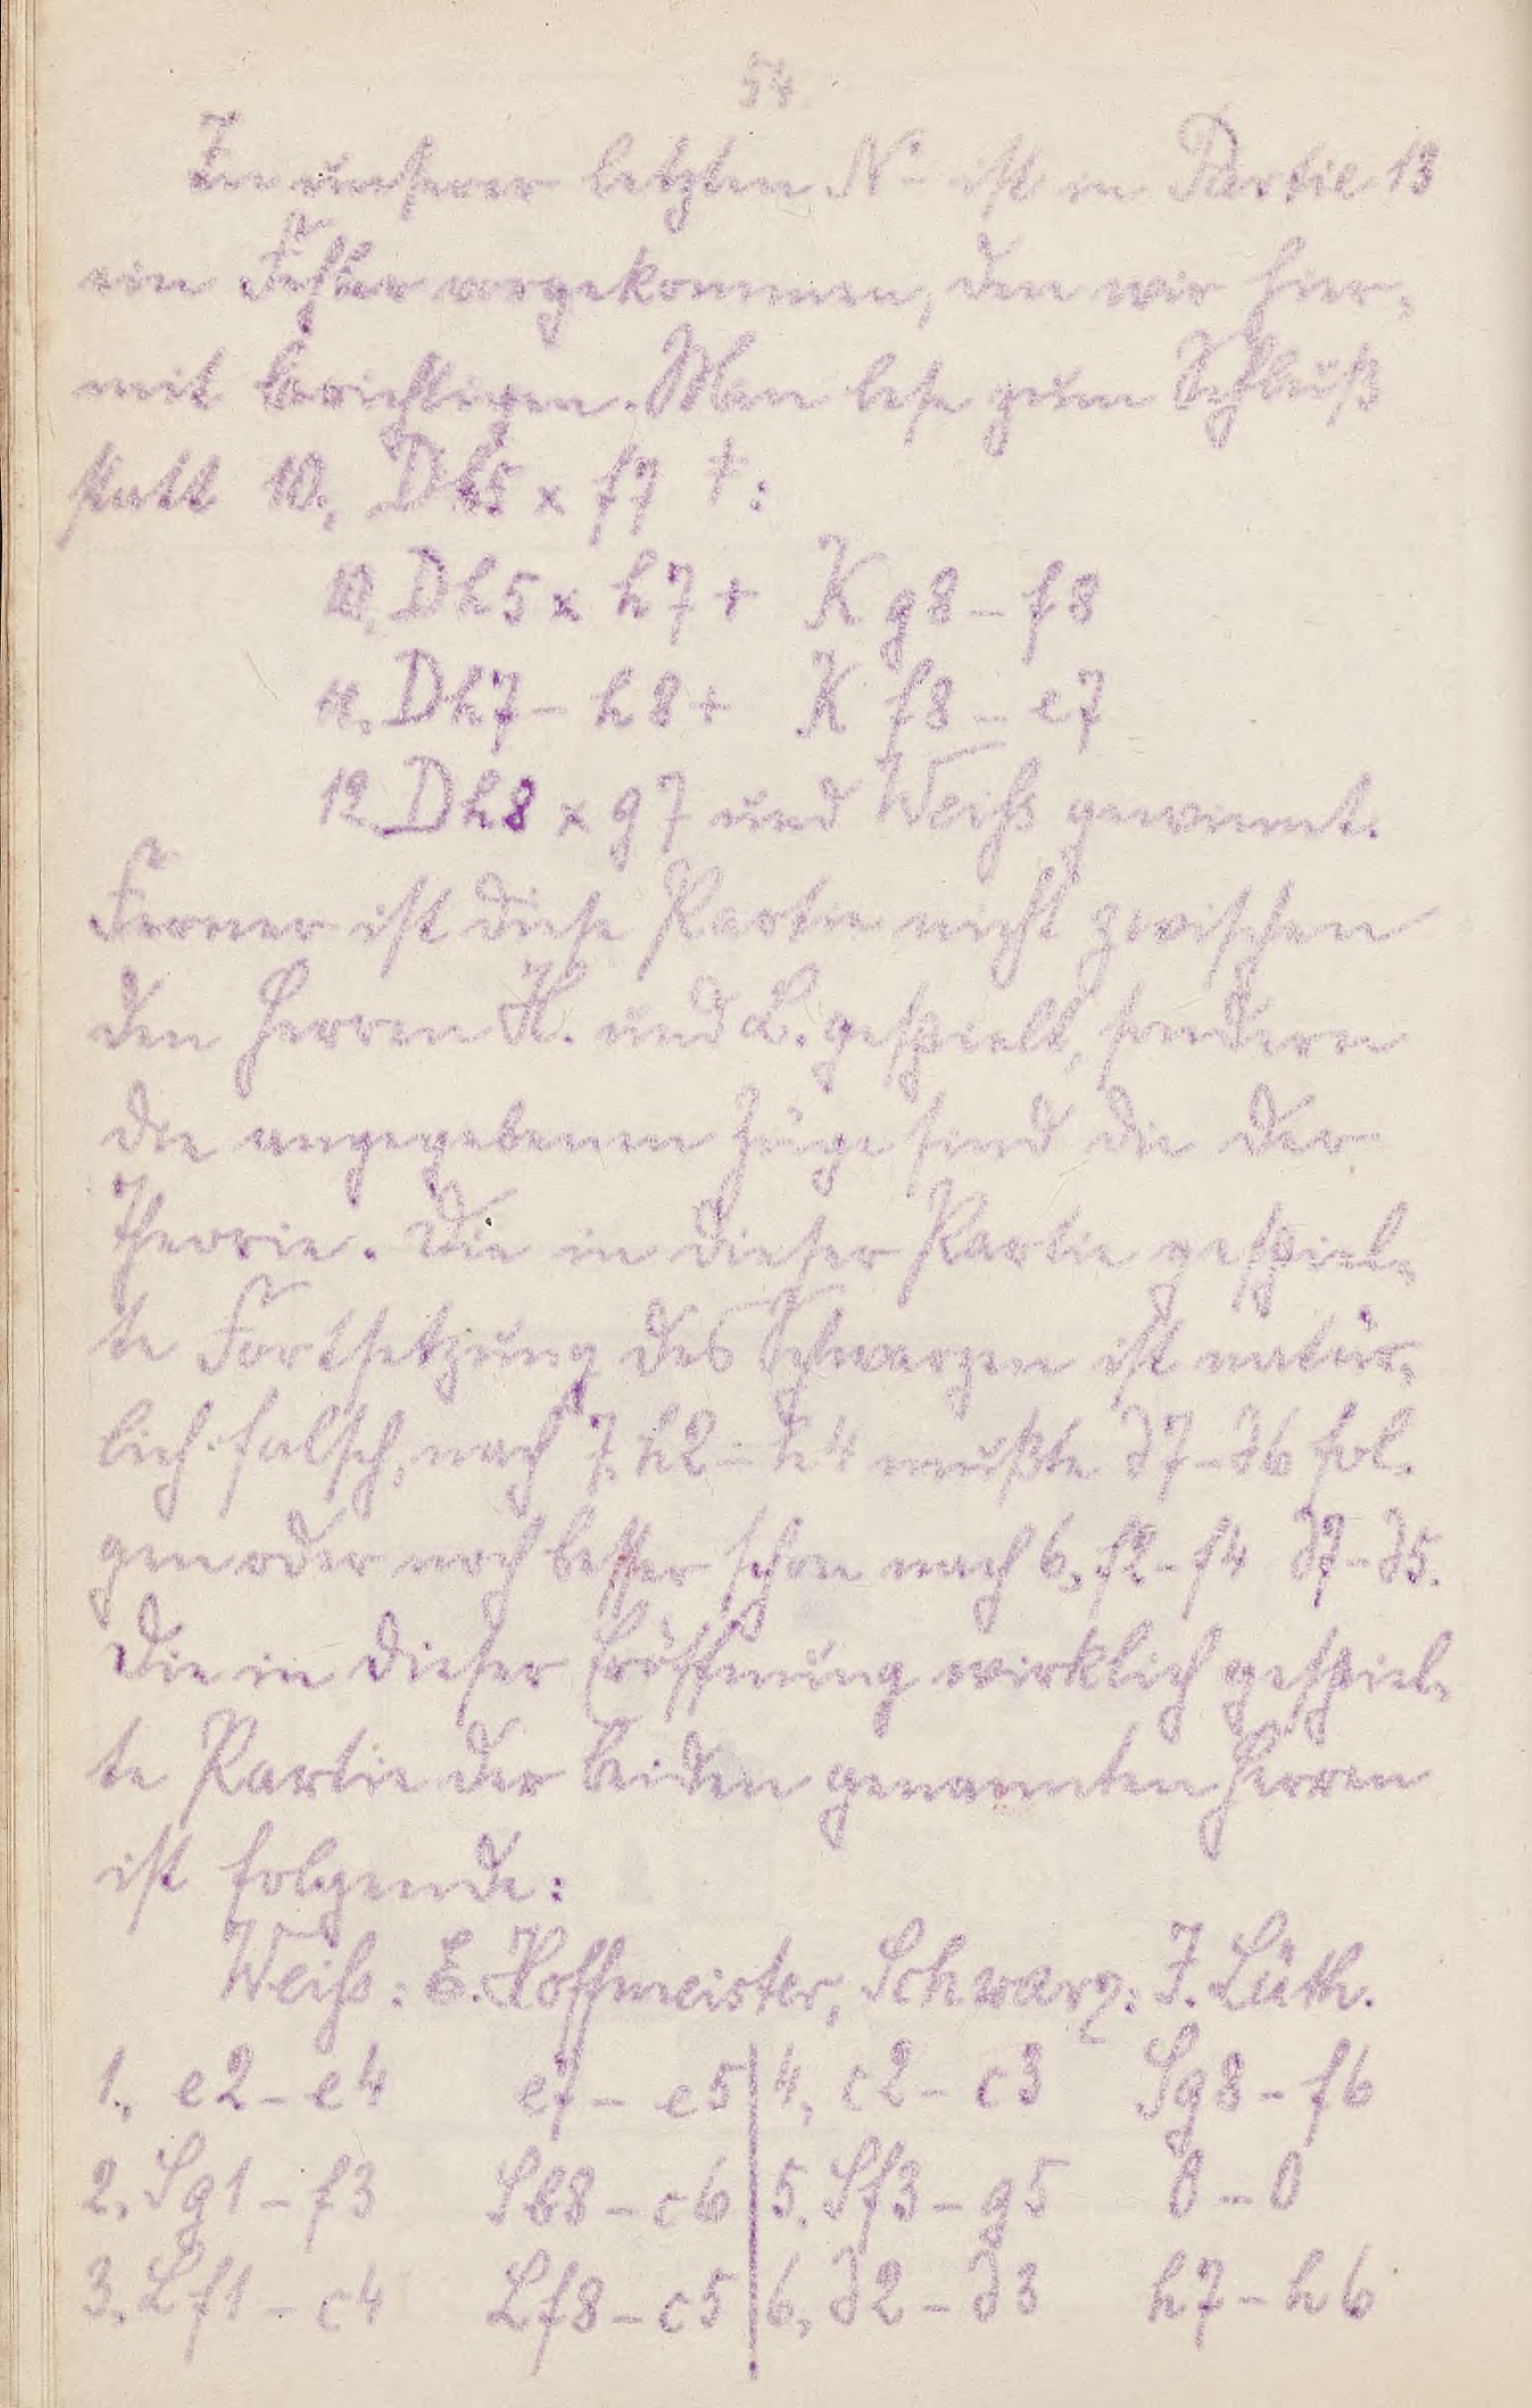 54
In unserer letzten No ist in Partie 13
ein Fehler vorgekommen, den wir hier-
mit berichtigen. Man lese zum Schluß
statt 10., Dh5 x f7 +:
10., Dh5 x h7 + Kg8 – f8
11., Dh7 – h8 + Kf8 – e7
12., Dh8 x g7 und Weiss gewinnt.
Ferner ist diese Partie nicht zwischen
den Herren H. und L. gespielt, sondern
die angegebenen Züge sind die der
Theorie. Die in dieser Partie gespiel-
te Fortsetzung des Schwarzen ist natür-
lich falsch, nach 7. h2 – h4 mußte d7 – d6 fol-
gen oder noch besser schon nach 6., f2 – f4 d7 – d5.
Die in dieser Eröffnung wirklich gespiel-
te Partie der beiden genannten Herren
ist folgende:
Weiss: E. Hoffmeister, Schwarz: J. Lüth.
1., e2 – e4 e7 – e5 | 4., c2 – c3 Sg8 – f6
2., Sg1 – f3 Sb8 – c6 | 5., Sf3 – g5 0 – 0
3., Lf1 – c4 Lf8 – c5 | 6., d2 – d3 h7 – h6